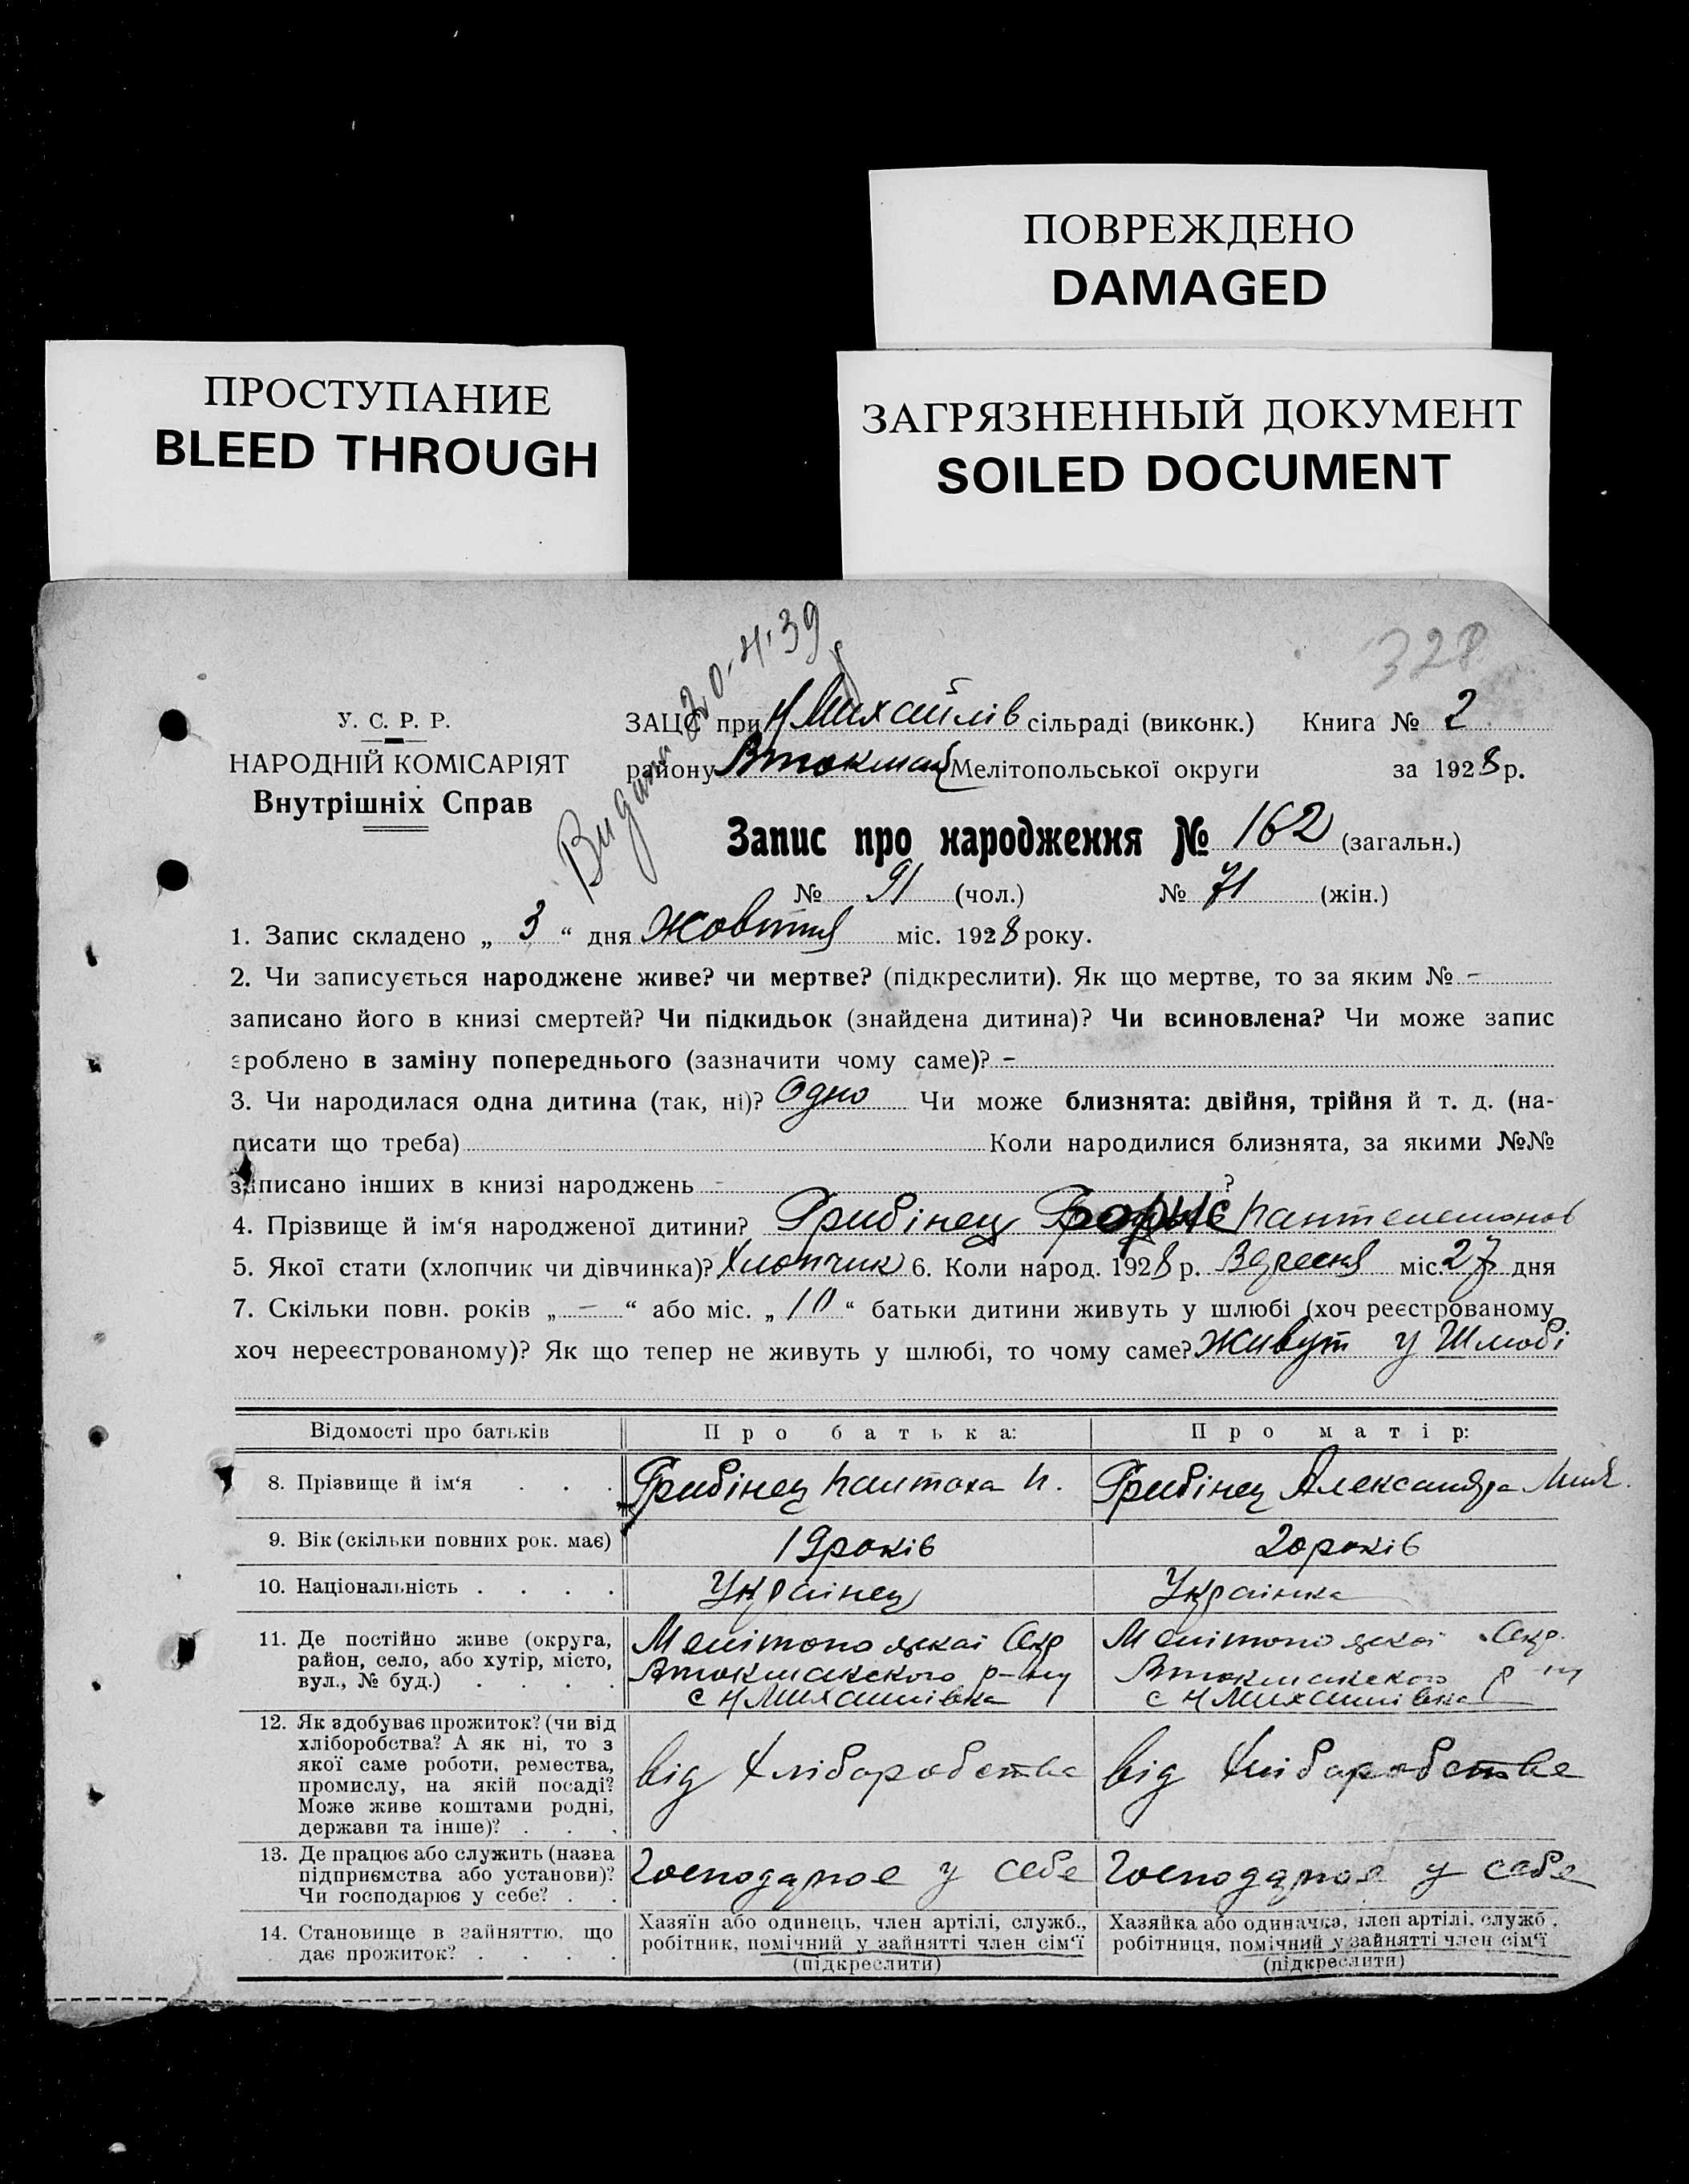 ПОВРЕЖДЕНО
DAMAGED
ПРОСТУПАНИЕ
BLEED THROUGH
ЗАГРЯЗНЕННЫЙ ДОКУМЕНТ
SOILED DOCUMENT
328
Видано 20-4-39
У. С. Р. Р.
НАРОДНІЙ КОМІСАРІЯТ
Внутрішніх Справ
ЗАЦС при Н Михайлів сільраді (виконк.) Книга № 2
району Втокмак Мелітопольської округи за 1928 р.
Запис про народження № 162 (загальн.)
№ 91 (чол.) № 71 (жін.)
1. Запис складено „ 3 “ дня Жовтня міс. 1928 року.
2. Чи записується народжене живе? чи мертве? (підкреслити). Як що мертве, то за яким № -
записано його в книзі смертей? Чи підкидьок (знайдена дитина)? Чи всиновлена? Чи може запис
зроблено в заміну попереднього (зазначити чому саме)? -
3. Чи народилася одна дитина (так, ні)? Одно Чи може близнята: двійня, трійня й т. д. (на-
писати що треба) Коли народилися близнята, за якими №№
записано інших в книзі народжень - ?
4. Прізвище й ім‘я народженої дитини? Грибінец Борис Пантелемонов
5. Якої стати (хлопчик чи дівчинка)? Хлопчик 6. Коли народ. 1928 р. Вересня міс. 27 дня
7. Скільки повн. років „ - “ або міс. „ 10 “ батьки дитини живуть у шлюбі (хоч реєстрованому
хоч нереєстрованому)? Як що тепер не живуть у шлюбі, то чому саме? Живут у Шлюбі
Відомості про батьків Про батька: Про матір:
8. Прізвище й ім‘я . . . Грибінец Пантоха П. Грибінец Александра Мих.
9. Вік (скільки повних рок. має) 19 років 20 років
10. Національність . . . . Українец Українка
11. Де постійно живе (округа,
район, село, або хутір, місто,
вул., № буд.) . . . .
Мелітополскаї Окр
Втокмакского р-ну
с Н Михайлівка
Мелітополскої Окр.
Втокмакского р-ну
с Н Михайлівка
12. Як здобуває прожиток? (чи від
хліборобства? А як ні, то з
якої саме роботи, ремества,
промислу, на якій посаді?
Може живе коштами родні,
держави та інше)? . . .
від Хлібаробства
від Хлібаробства
13. Де працює або служить (назва
підприємства або установи)?
Чи господарює у себе? . .
Господарює у себе
Господарює у себе
14. Становище в зайняттю, що
дає прожиток? . . . .
Хазяїн або одинець, член артілі, служб.,
робітник, помічний у зайнятті член сім‘ї
(підкреслити)
Хазяйка або одиначка, член артілі, служб.,
робітниця, помічний у зайнятті член сім‘ї
(підкреслити)